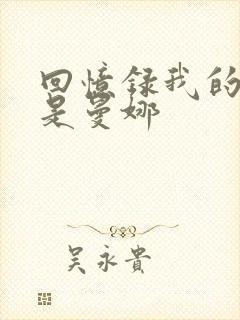 回憶錄我的
是曼娜
吴永貴